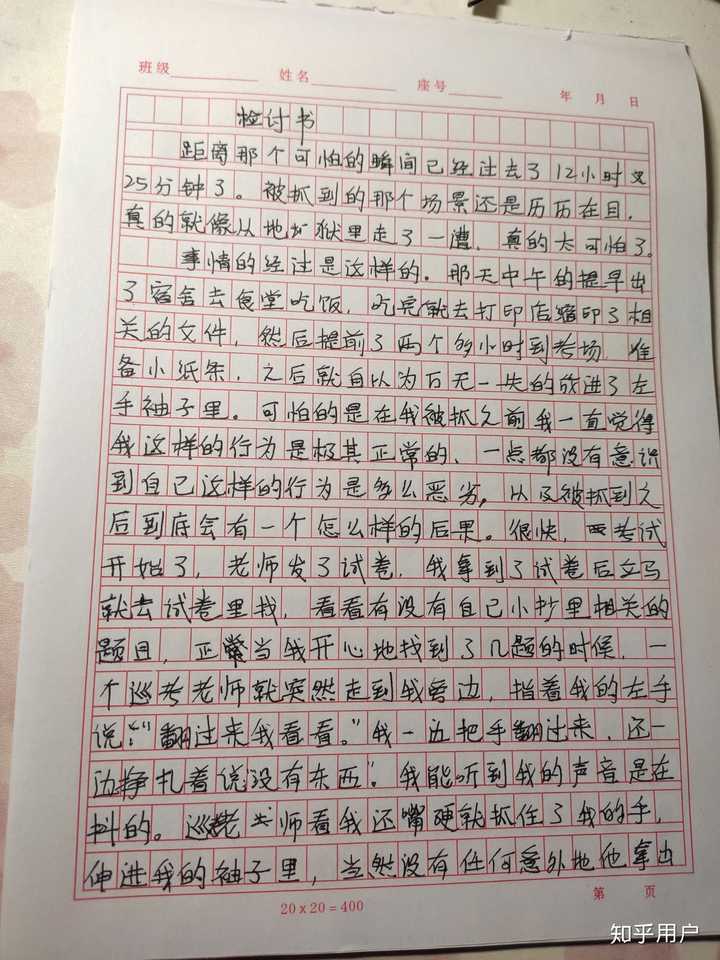 班级 姓名 座号 年 月 日
检讨书
距离那个可怕的瞬间已经过去了12小时又
25分钟了。被抓到的那个场景还是历历在目,
真的就像从地狱里走了一遭,真的太可怕了。
事情的经过是这样的。那天中午的提早出
了宿舍去食堂吃饭,吃完就去打印店缩印了相
关的文件,然后提前了两个多小时到考场,准
备小纸条,之后就自以为万无一失的放进了左
手袖子里。可怕的是在我被抓之前我一直觉得
我这样的行为是极其正常的、一点都没有意识
到自己这样的行为是多么恶劣,以及被抓到之
后到底会有一个怎么样的后果。很快,考试
开始了,老师发了试卷,我拿到了试卷后立马
就去试卷里找,看看有没有自己小抄里相关的
题目,正当我开心地找到了几题的时候,一
个巡考老师就突然走到我旁边,指着我的左手
说:"翻过来我看看。"我一边把手翻过来,还一
边挣扎着说没有东西"。我能听到我的声音是在
抖的。巡考老师看我还嘴硬就抓住了我的手,
伸进我的袖子里,当然没有任何意外地他拿出
20×20=400
第 页
知乎用户